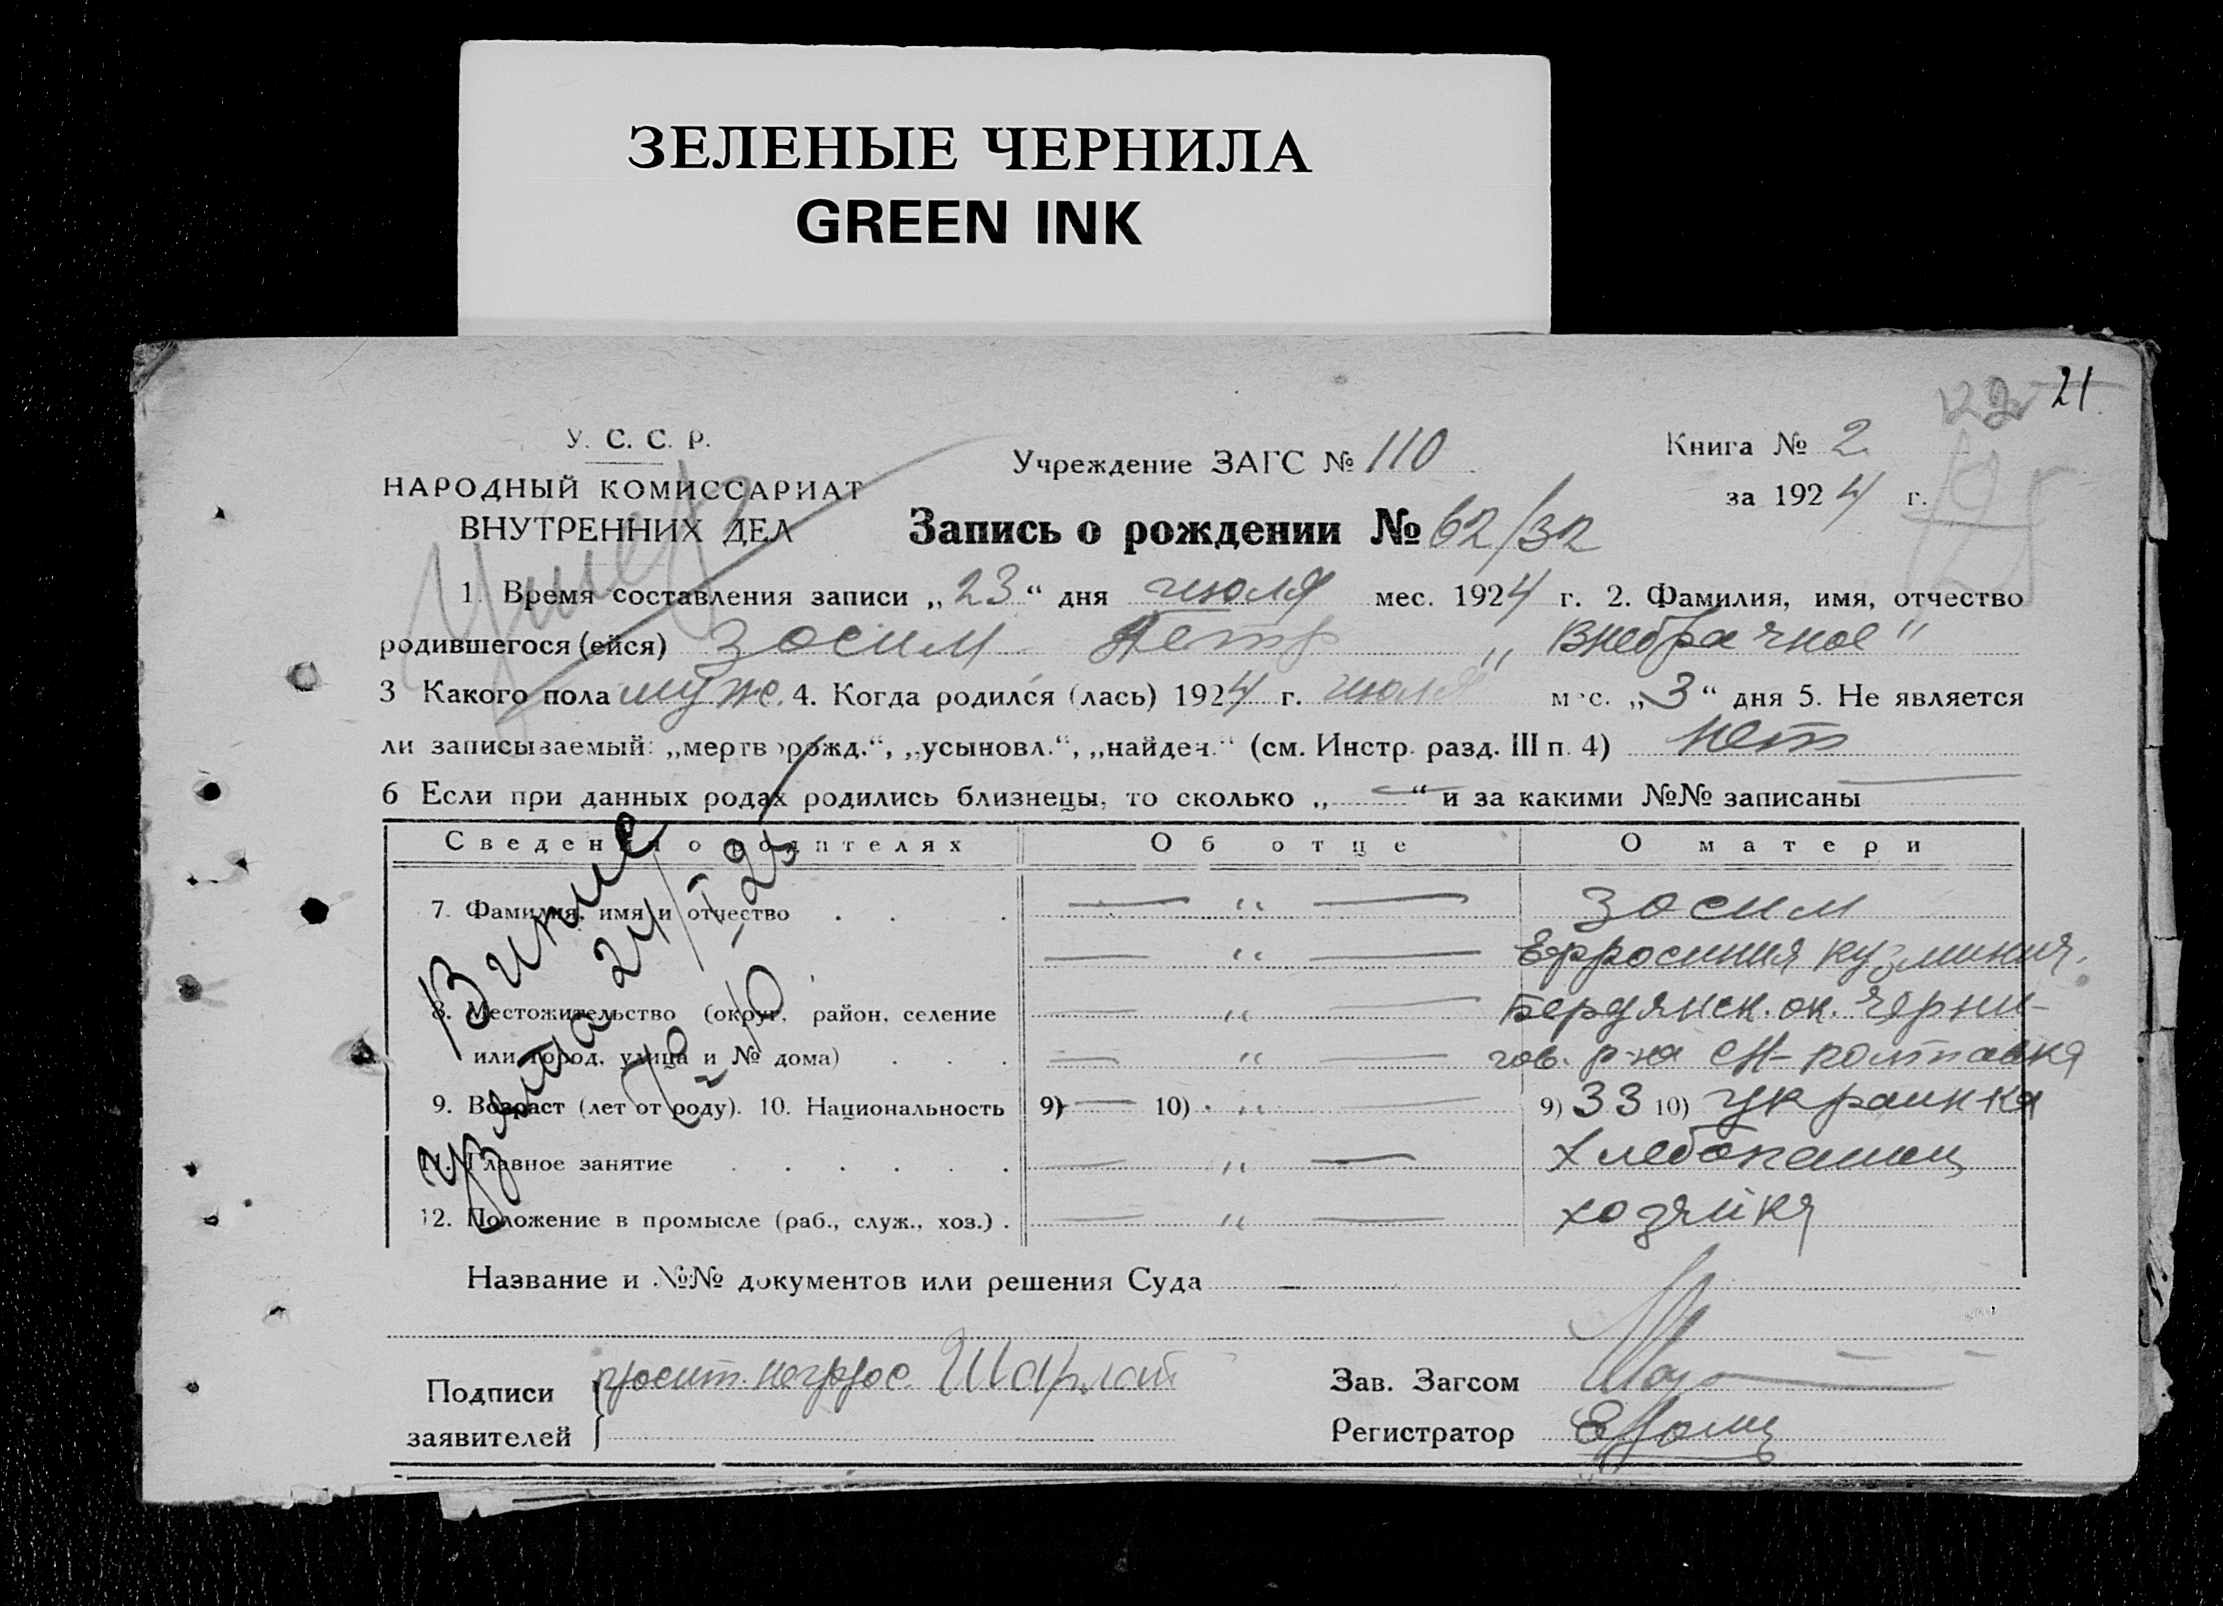 ЗЕЛЕНЫЕ ЧЕРНИЛА
GREEN INK
21
У. С. С. Р.
НАРОДНЫЙ КОМИССАРИАТ
ВНУТРЕННИХ ДЕЛ
Учреждение ЗАГС № 110
Книга № 2
за 1924 г.
Запись о рождении № 62/32
Умер
1. Время составления записи „23“ дня июля мес. 1924 г. 2. Фамилия, имя, отчество
родившегося (ейся) Зосим Петр „Внебрачное"
3 Какого пола муж. 4. Когда родился (лась) 1924 г. июля мес. „3“ дня 5. Не является
ли записываемый: „мертворожд.“, „усыновл.“, „найден.“ (см. Инстр. разд. III п. 4) нет
6 Если при данных родах родились близнецы, то сколько „—“ и за какими №№ записаны —
Сведения о родителях Об отце О матери
7. Фамилия, имя и отчество . . . — „ — Зосим
— „ — Ефросиния Кузминия.
8. Местожительство (округ, район, селение — „ — Бердянск. ок. Черни-
или город, улица и № дома) . . . — „ — гов. р-на Н-Полтавка
9. Возраст (лет от роду). 10. Национальность 9) — 10) „ — 9) 33 10) украинка
11. Главное занятие . . . . . . — „ — хлебопашец
12. Положение в промысле (раб., служ., хоз.) . — „ — хозяйка
Название и №№ документов или решения Суда —
Подписи
заявителей
негр. Шарлай
Зав. Загсом
Регистратор